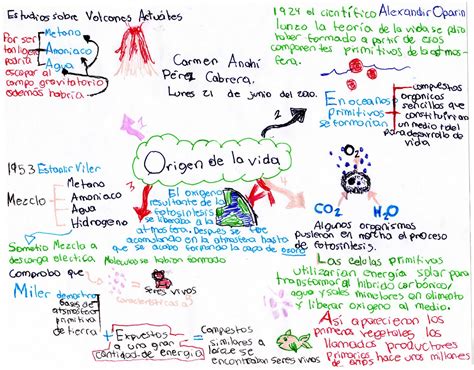 Estudios sobre Volcanes Actuales
Por ser
tan ligero
podria
escapar al
campo gravitatorio
además habria
Metano
Amoniaco
Agua
Carmen Anahí
Pérez Cabrera.
Lunes 21 de junio del 2010.
1924 el científico Alexandir Oparin
lunzo la teoría de la vida se pudo
haber formado a partir de esos
componentes primitivos de la atmos-
fera.
En oceános
primitivos
se formarian
compuestos
organicos
sencillos que
constituirian
un medio ideal
para desarrollo de
vida
1
2
Origen de la vida
3
4
1953 Estanlir Viler
Mezclo
Metano
Amoniaco
Agua
Hidrogeno
Sometio Mezclo a
descarga electica
Moleculas se habian formado
Comprobo que
seres vivos
características
Miler demostro
bases de
atmosfera
primitiva
de tierra
+
Expuestos
a una gran
cantidad de energia
=
compestos
similares a
los que se
encontraban
seres vivos
El oxigeno
resultante de la
fotosintesis
se liberaba a la
atmosfera. Despues se fue
acumulando en la atmosfera hasta
que se acabo formando la capa de ozono
O2
CO2
H2O
Algunos organismos
pusieron en marcha el proceso
de fotosintesis.
Las celulas primitivas
utilizarian energía solar para
transformar al hibrido carbónico,
agua y sales minerales en alimento
y liberar oxigeno al medio.
Así aparecieron los
primeros vegetales los
llamados productores
primarios hace unos millones
de años